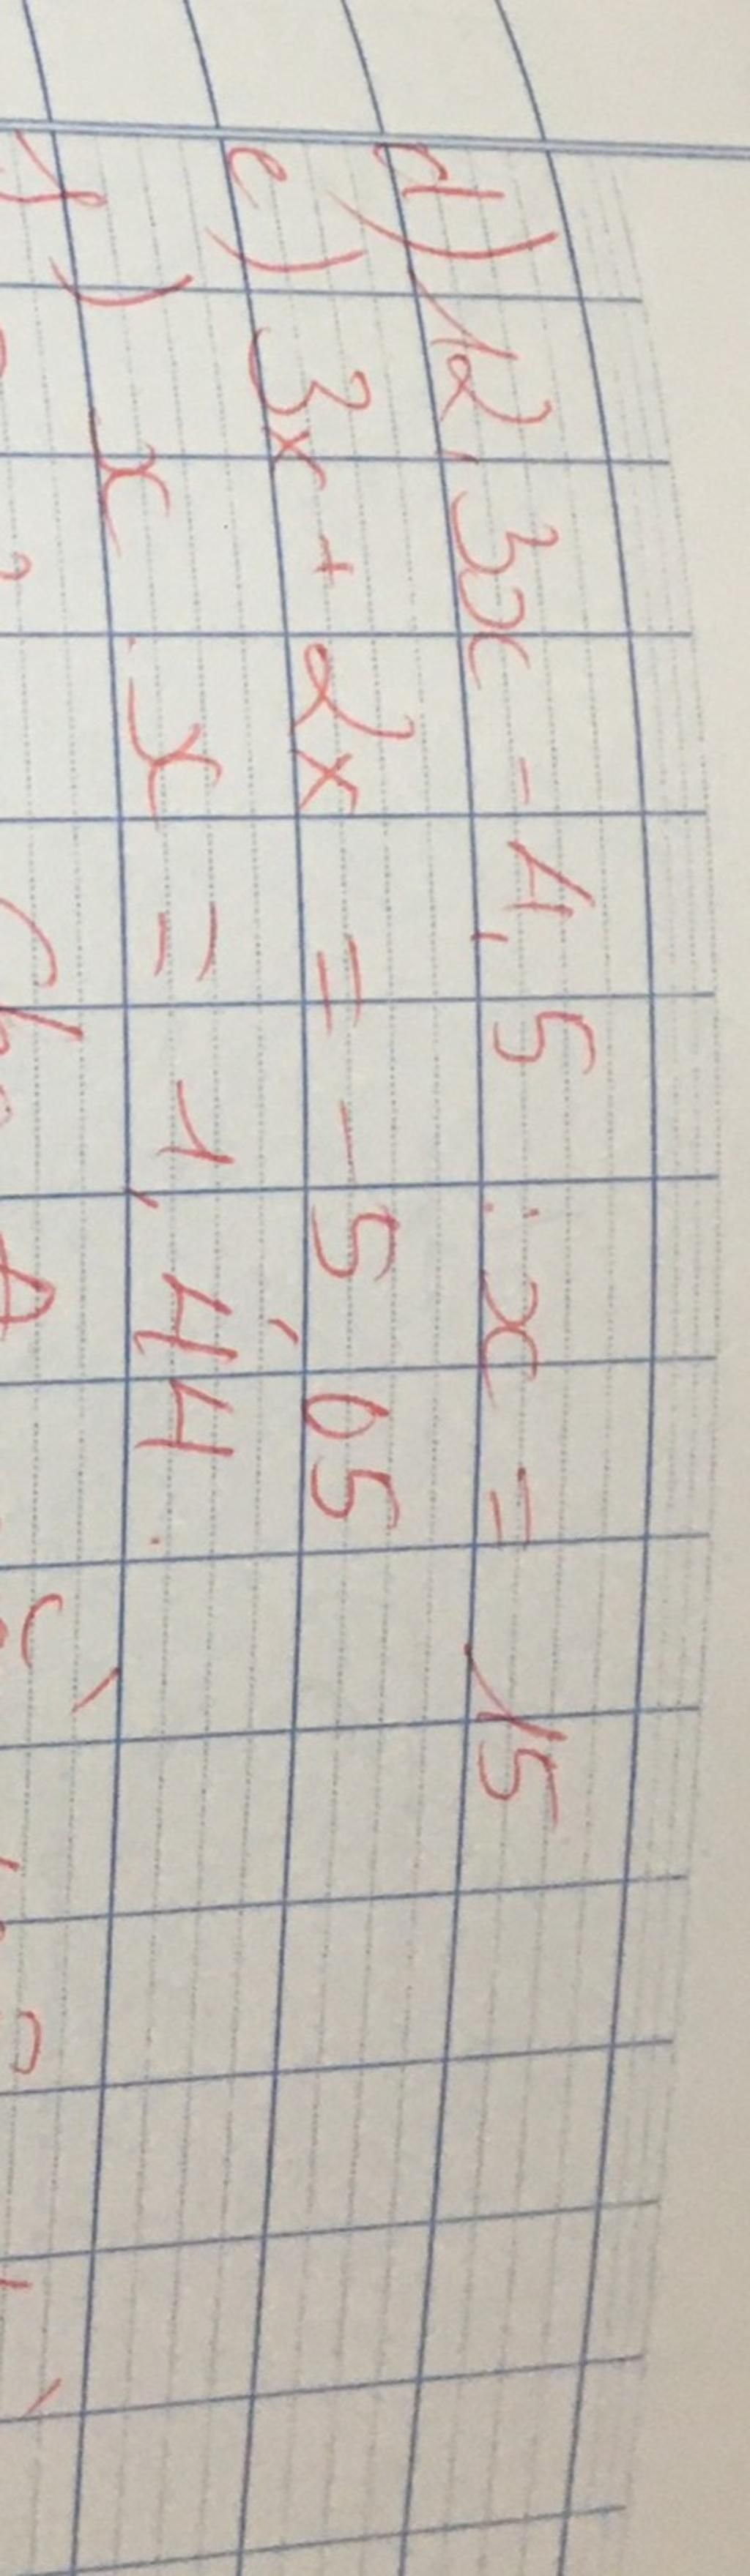 d) 12,3x - 4,5 : x = 15
e) 3x + 2x = -5,05
f) x . x = 1,44.